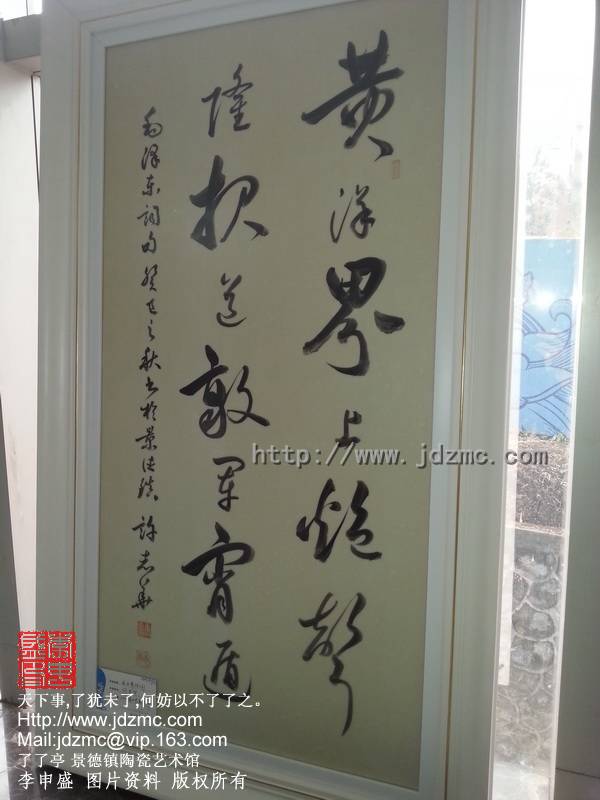 黄洋界上炮聲
隆报道敵军宵遁
毛泽东词句癸巳之秋书於景德镇 許志華
http://www.jdzmc.com
天下事,了犹未了,何妨以不了了之。
Http://www.jdzmc.com
Mail:jdzmc@vip.163.com
了了亭 景德镇陶瓷艺术馆
李申盛 图片资料 版权所有